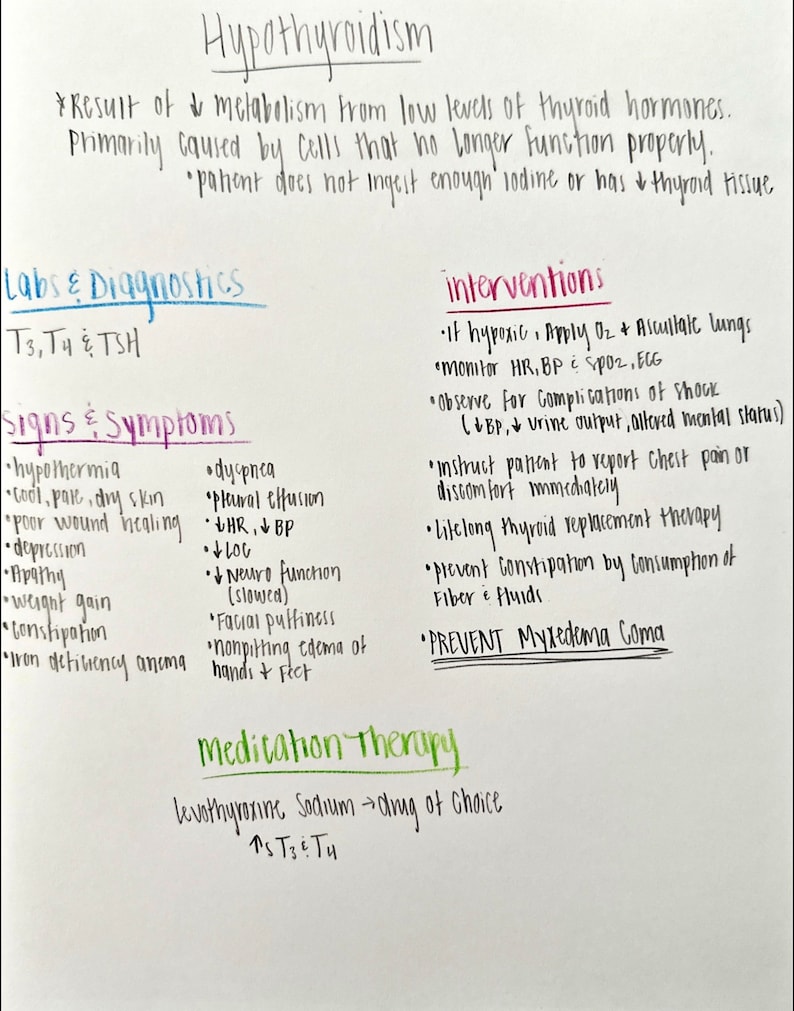 Hypothyroidism
*Result of ↓ metabolism from low levels of thyroid hormones.
Primarily caused by cells that no longer function properly.
•patient does not ingest enough iodine or has ↓ thyroid tissue
Labs & Diagnostics
T3, T4 & TSH
Signs & Symptoms
•hypothermia
•Cool, pale, dry skin
•poor wound healing
•depression
•Apathy
•weight gain
•Constipation
•Iron deficiency anema
•dyspnea
•pleural effusion
•↓HR, ↓BP
•↓LOC
•↓Neuro function
(slowed)
•Facial puffiness
•nonpitting edema of
hands + Feet
interventions
•If hypoxic, Apply O2 + Ascultate lungs
•monitor HR, BP & SpO2, ECG
•observe for complications of shock
(↓BP, ↓ urine output, altered mental status)
•instruct patient to report chest pain or
discomfort immediately
•Lifelong thyroid replacement therapy
•prevent constipation by consumption of
Fiber & fluids
•PREVENT Myxedema Coma
Medication Therapy
Levothyroxine Sodium → drug of choice
↑s T3 & T4